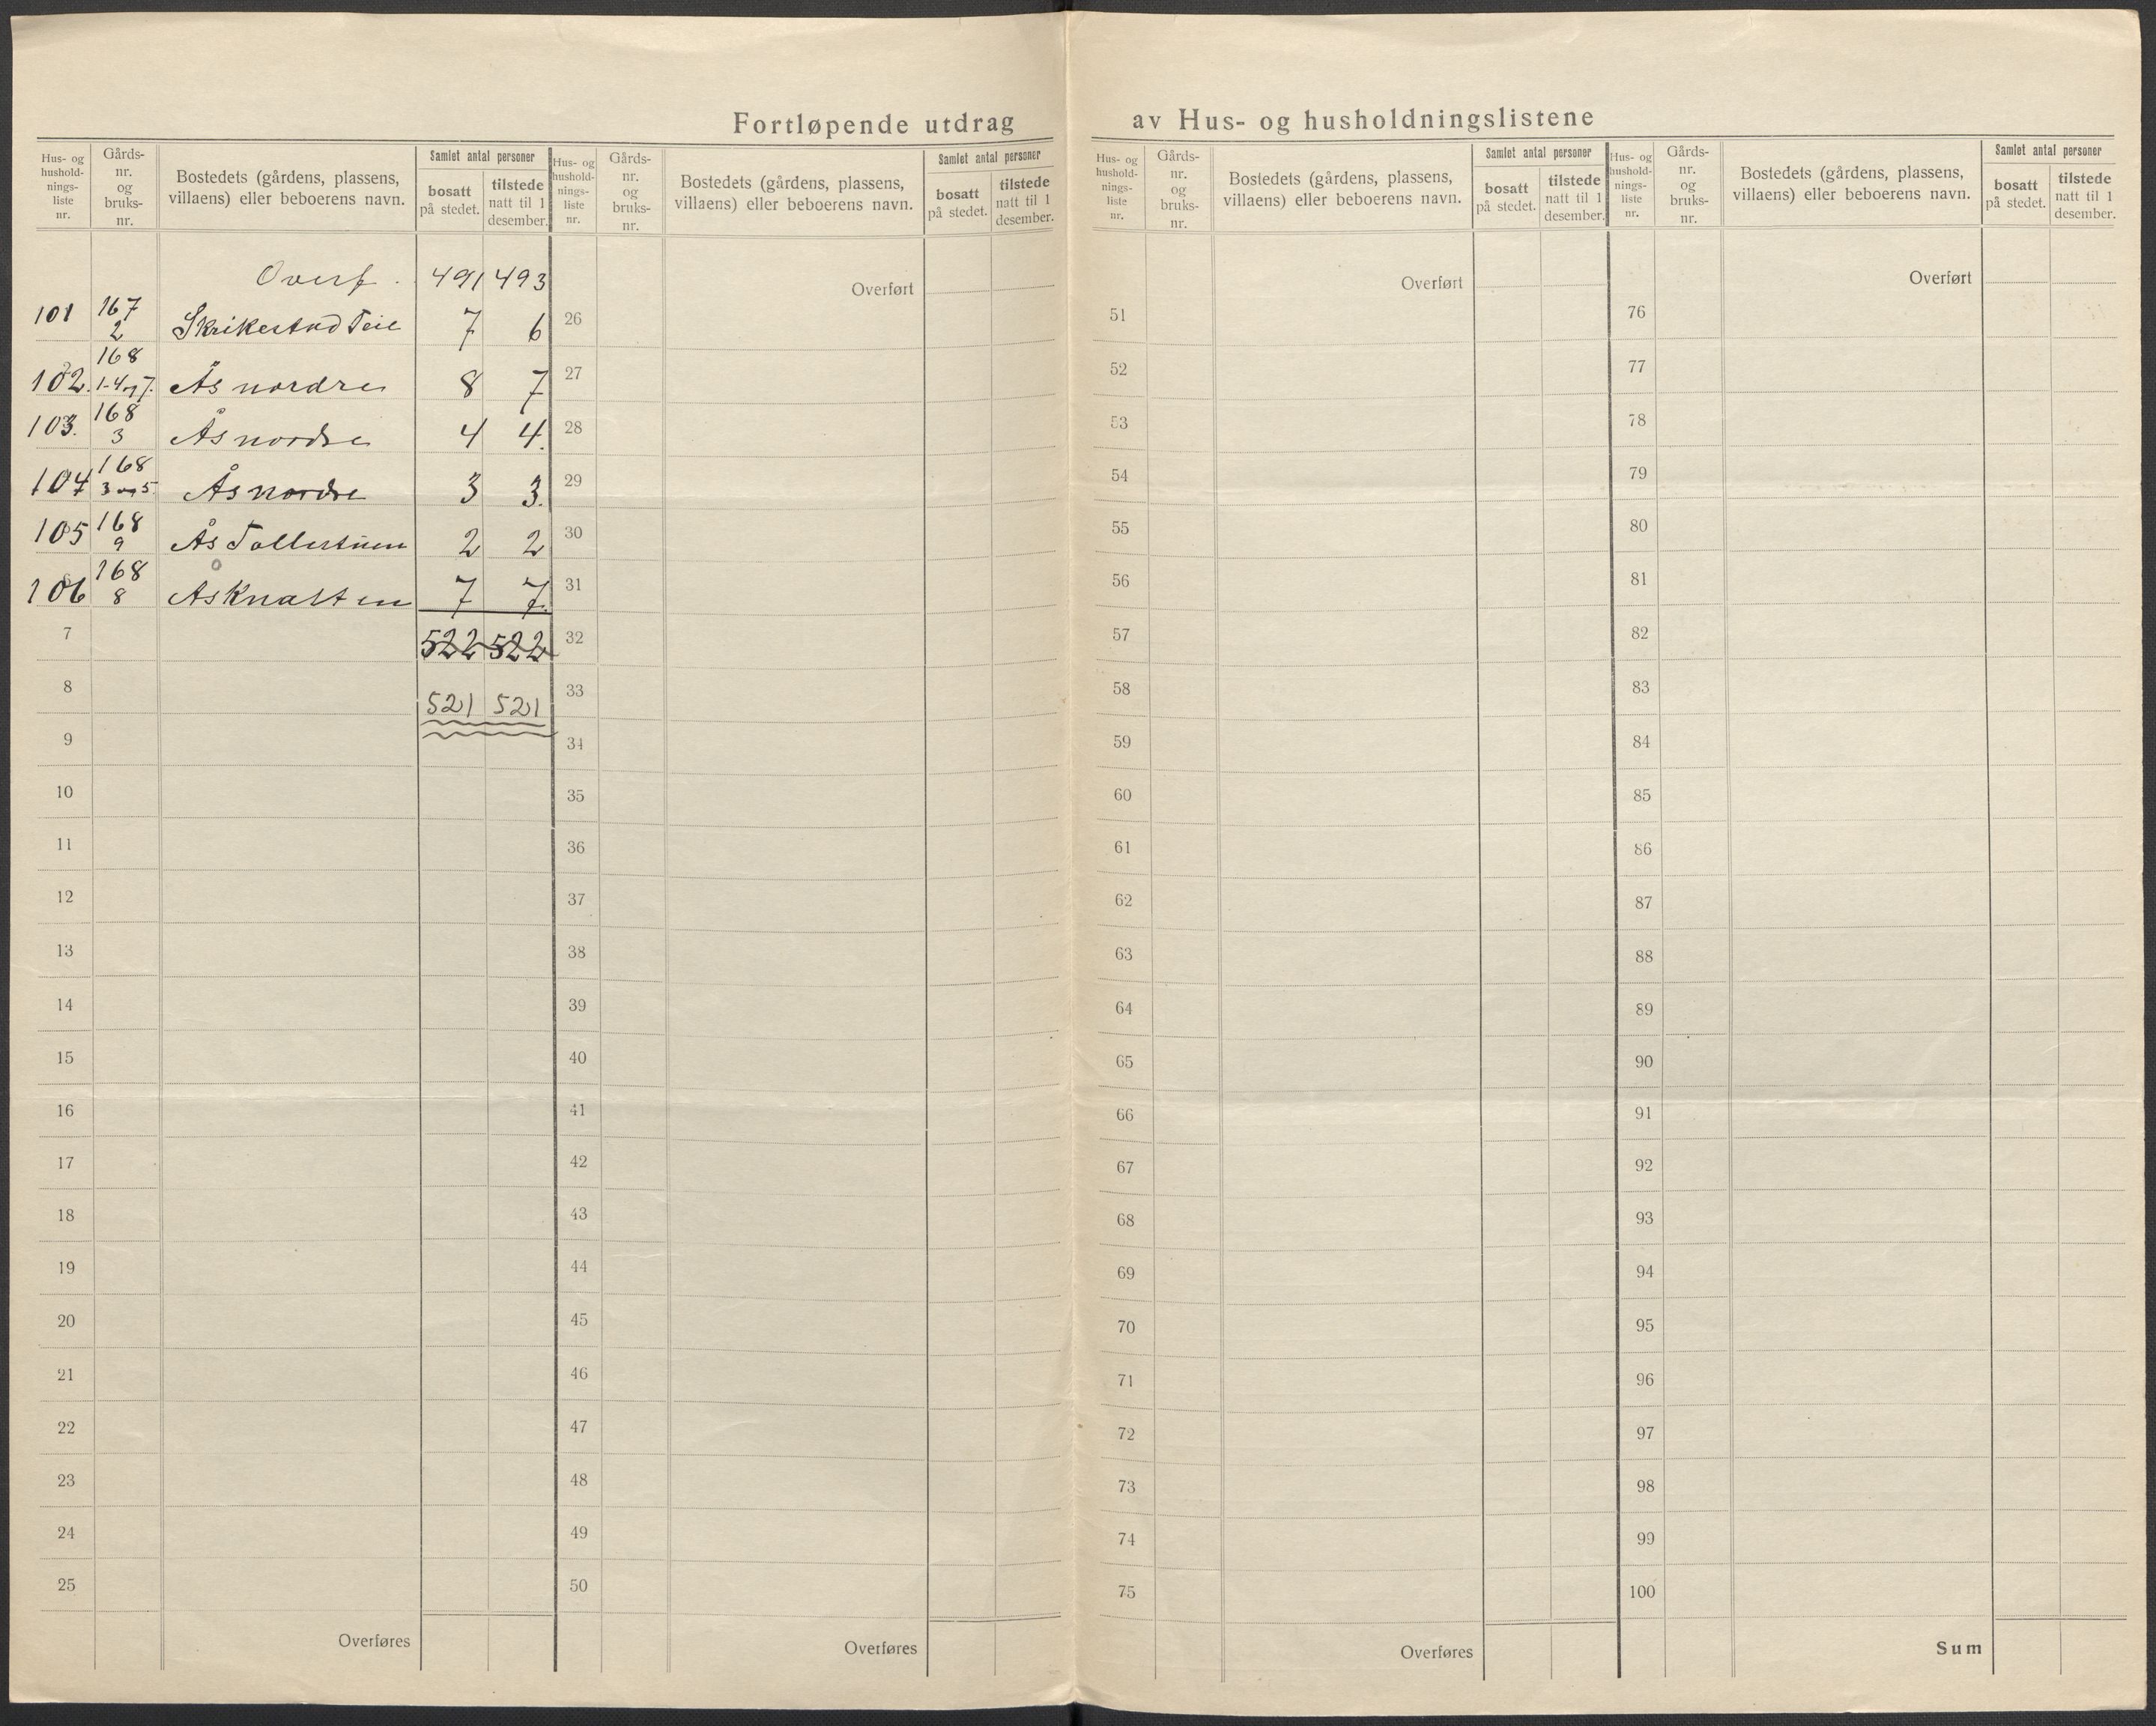 Fortløpende utdrag av Hus- og husholdningslistene
Hus- og hushold-nings-liste nr.
Gårds-nr. og bruks-nr.
Bostedets (gårdens, plassens, villaens) eller beboerens navn.
Samlet antal personer
bosatt på stedet.
tilstede natt til 1 desember.
Hus- og hushold-nings-liste nr.
Gårds-nr. og bruks-nr.
Bostedets (gårdens, plassens, villaens) eller beboerens navn.
Samlet antal personer
bosatt på stedet.
tilstede natt til 1 desember.
Hus- og hushold-nings-liste nr.
Gårds-nr. og bruks-nr.
Bostedets (gårdens, plassens, villaens) eller beboerens navn.
Samlet antal personer
bosatt på stedet.
tilstede natt til 1 desember.
Hus- og hushold-nings-liste nr.
Gårds-nr. og bruks-nr.
Bostedets (gårdens, plassens, villaens) eller beboerens navn.
Samlet antal personer
bosatt på stedet.
tilstede natt til 1 desember.
Overf. 491 493
101 167 2 Skrikestad Teie 7 6
102. 168 1-4 og 7. Ås nordre 8 7
103. 168 3 Ås nordre 4 4.
104 168 3 og 5. Ås nordre 3 3.
105 168 9 Ås Tollerstuen 2 2
106 168 8 Ås Knatten 7 7.
7 522 522
8 521 521
9
10
11
12
13
14
15
16
17
18
19
20
21
22
23
24
25
Overføres
Overført
26
27
28
29
30
31
32
33
34
35
36
37
38
39
40
41
42
43
44
45
46
47
48
49
50
Overføres
Overført
51
52
53
54
55
56
57
58
59
60
61
62
63
64
65
66
67
68
69
70
71
72
73
74
75
Overføres
Overført
76
77
78
79
80
81
82
83
84
85
86
87
88
89
90
91
92
93
94
95
96
97
98
99
100
Sum